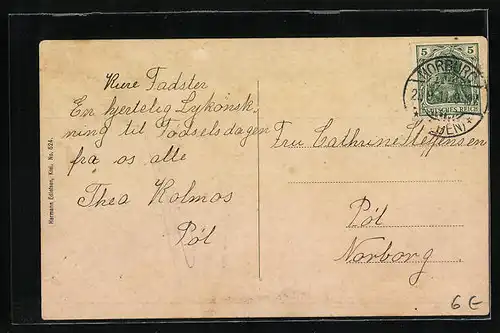 Kære Fadster
En hjertelig Lykønsk-
ning til Fødselsdagen
fra os alle
Thea Holmos
Pøl
Fru Cathrine Steffensen
Pøl
Norborg
5 5
DEUTSCHES REICH
NORBURG
(ALSEN)
Hermann Edlefsen, Kiel. No. 624.
6 E